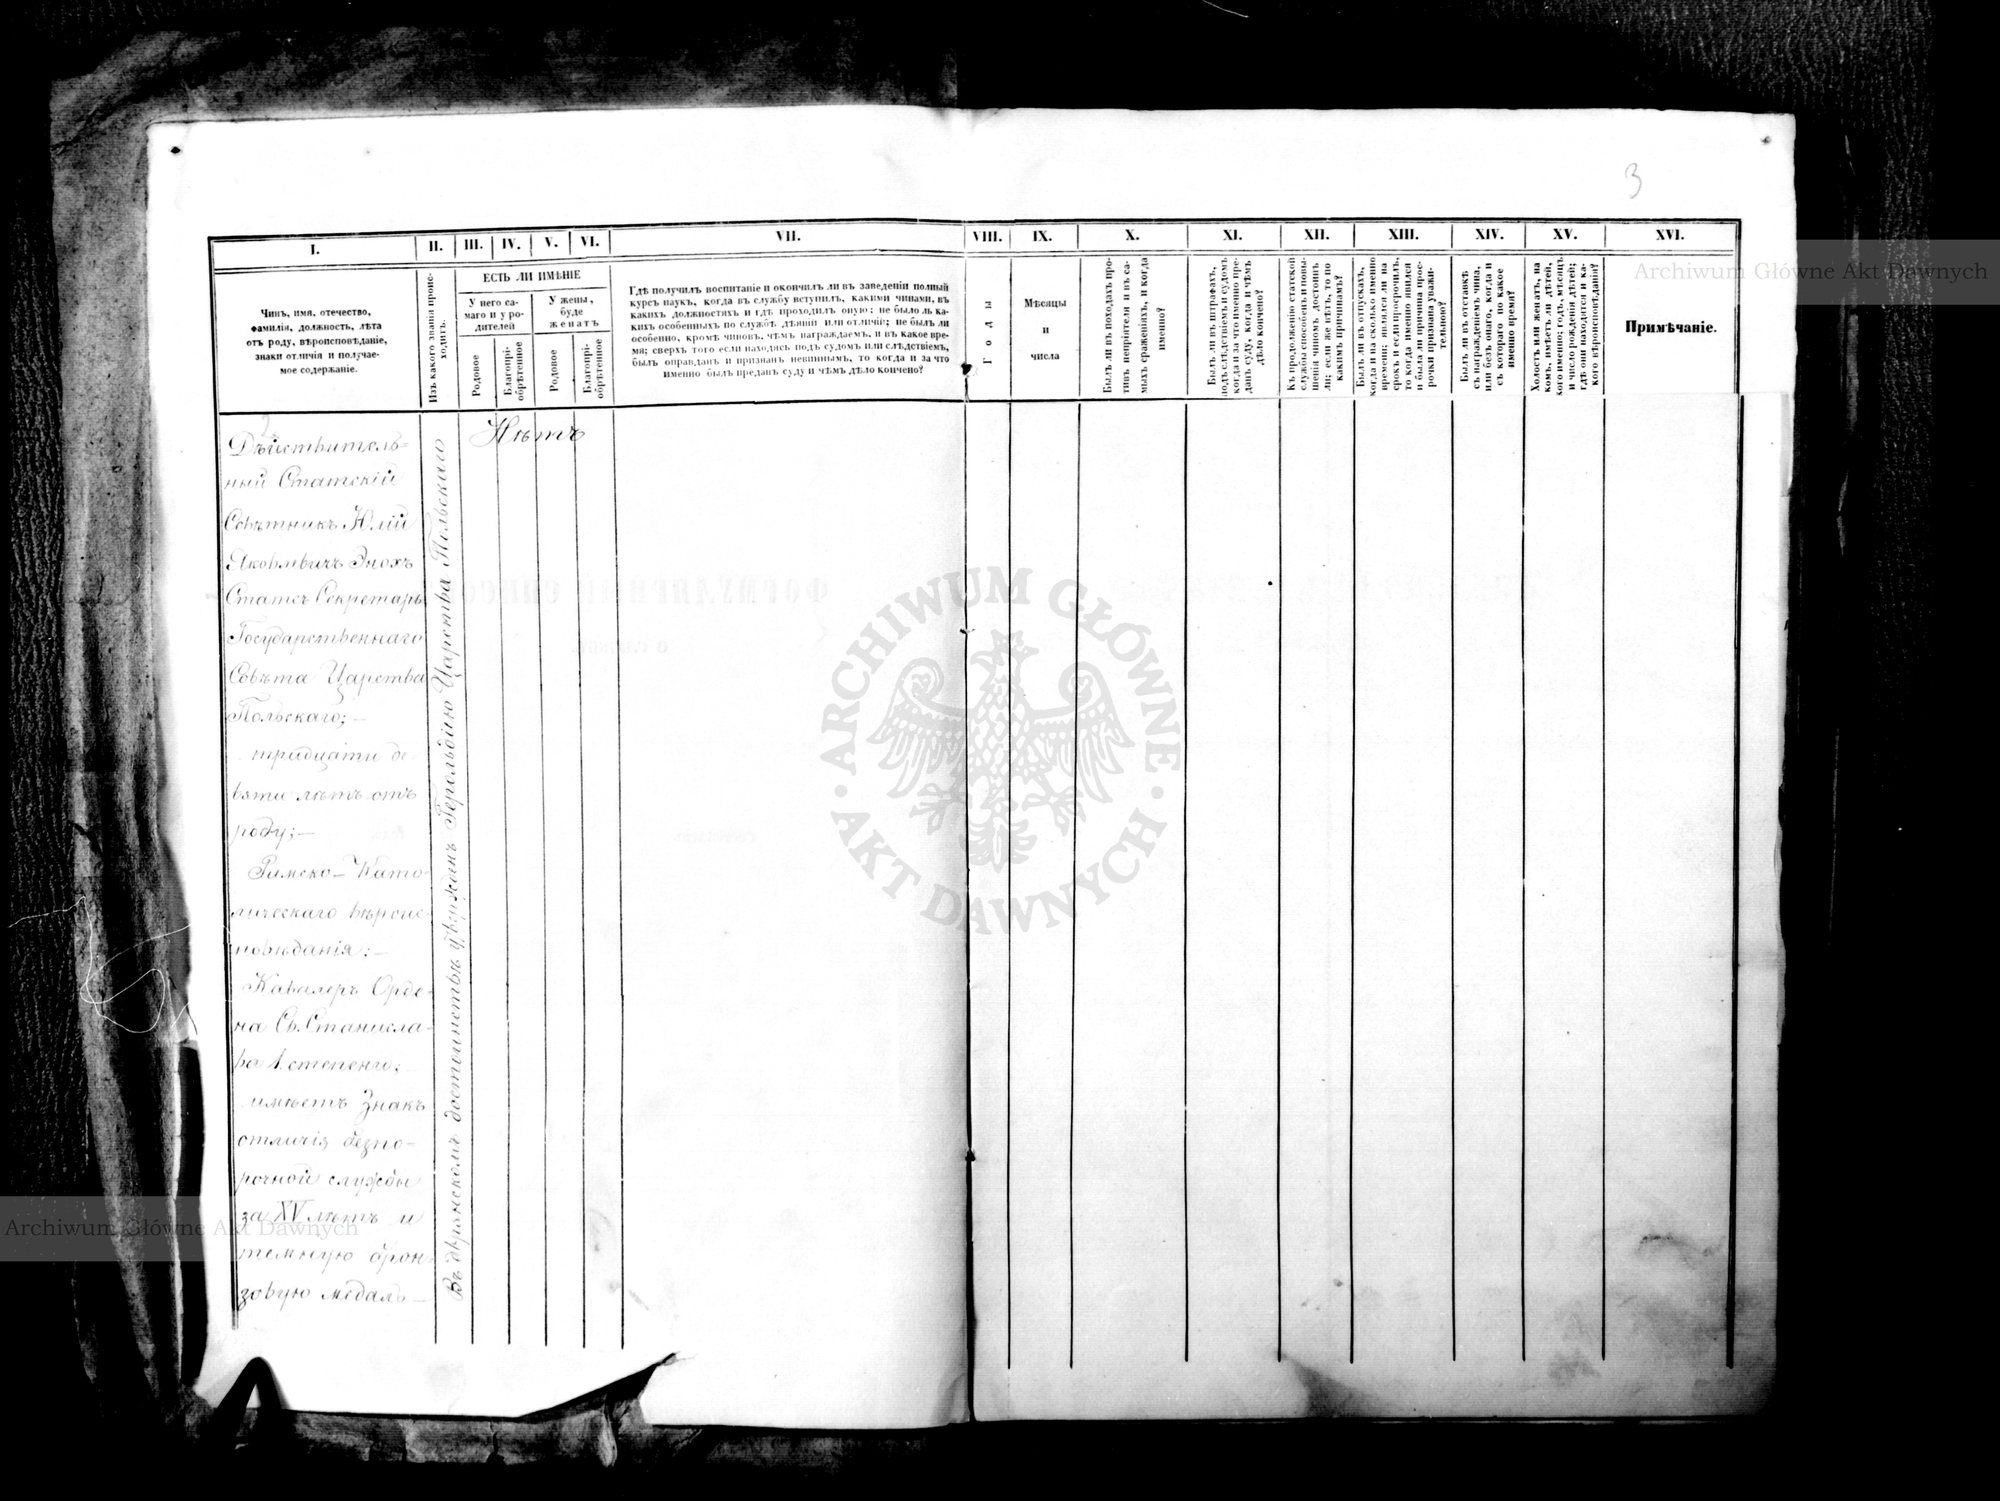 3
I. II. III. IV. V. VI. VII. VIII. IX. X. XI. XII. XIII. XIV. XV. XVI.
Чинъ, имя, отечество,
фамилія, должность, лѣта
отъ роду, вѣроисповѣданіе,
знаки отличія и получае-
мое содержаніе.
Изъ какого званія проис-
ходитъ.
ЕСТЬ ЛИ ИМѢНІЕ
У него са-
маго и у ро-
дителей
У жены,
буде
женатъ
Родовое
Благопрі-
обрѣтенное
Родовое
Благопрі-
обрѣтенное
Гдѣ получилъ воспитаніе и окончилъ ли въ заведеніи полный
курсъ наукъ, когда въ службу вступилъ, какими чинами, въ
какихъ должностяхъ и гдѣ проходилъ оную; не было ль ка-
кихъ особенныхъ по службѣ дѣяній или отличій; не былъ ли
особенно, кромѣ чиновъ, чѣмъ награждаемъ, и въ какое вре-
мя; сверхъ того если находясь подъ судомъ или слѣдствіемъ,
былъ оправданъ и признанъ невиннымъ, то когда и за что
именно былъ преданъ суду и чѣмъ дѣло кончено?
Годы
Мѣсяцы
и
числа
Былъ ли въ походахъ про-
тивъ непріятеля и въ са-
мыхъ сраженіяхъ, и когда
именно?
Былъ ли въ штрафахъ,
подъ слѣдствіемъ и судомъ
когда и за что именно пре-
данъ суду, когда и чѣмъ
дѣло кончено?
Къ продолженію статской
службы способенъ и повы-
шенія чиномъ достоинъ
ли; если же нѣтъ, то по
какимъ причинамъ?
Былъ ли въ отпускахъ,
когда и на сколько именно
времени; являлся ли на
срокъ и если просрочилъ,
то когда именно явился
и была ли причина прос-
рочки признана уважи-
тельною?
Былъ ли въ отставкѣ
съ награжденіемъ чина,
или безъ онаго, когда и
съ котораго по какое
именно время?
Холостъ или женатъ, на
комъ, имѣетъ ли дѣтей,
кого именно; годъ, мѣсяцъ
и число рожденія дѣтей;
гдѣ они находятся и ка-
кого вѣроисповѣданія?
Примѣчаніе.
2.
Дѣйствитель-
ный Статскій
Совѣтникъ Юлій
Яковлевичъ Энохъ
Статсъ Секретарь
Государственнаго
Совѣта Царства
Польскаго;—
тридцати де-
вяти лѣтъ отъ
роду;—
Римско-Като-
лическаго вѣроис-
повѣданія;—
Кавалеръ Орде-
на Св. Станисла-
ва 1. степени;
имѣетъ Знакъ
отличія безпо-
рочной службы
за XV лѣтъ и
темную брон-
зовую медаль—
Въ дворянскомъ достоинствѣ утвержденъ Герольдіею Царства Польскаго
Нѣтъ
ФОРМУЛЯРНЫЙ СПИСОКЪ
О СЛУЖБѢ
ARCHIWUM GŁÓWNE
AKT DAWNYCH
Archiwum Główne Akt Dawnych
Archiwum Główne Akt Dawnych